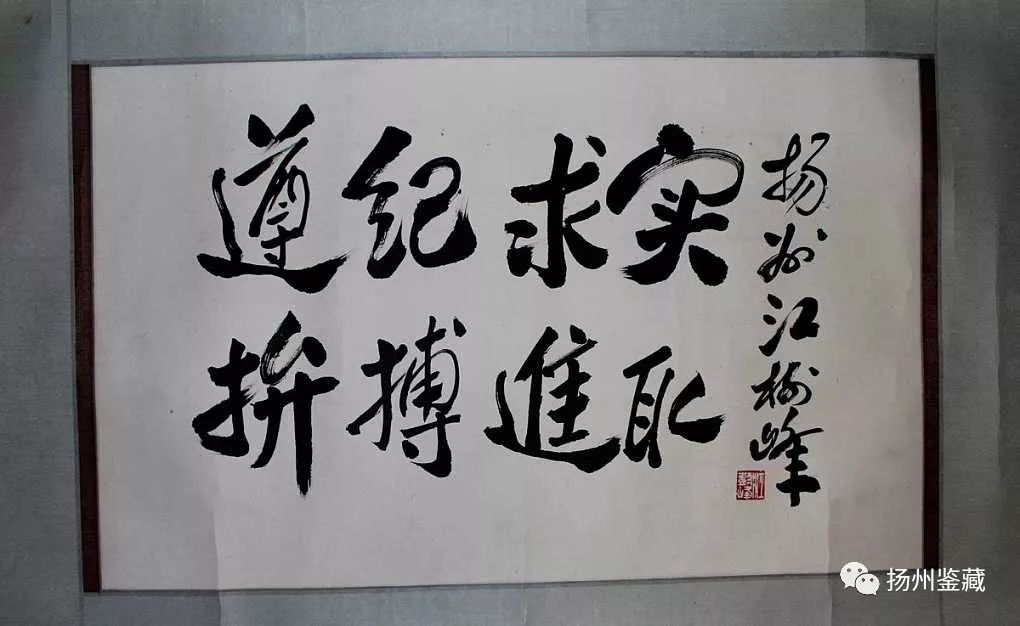 遵纪求实
拼搏進取
扬州江树峰
扬州鉴藏